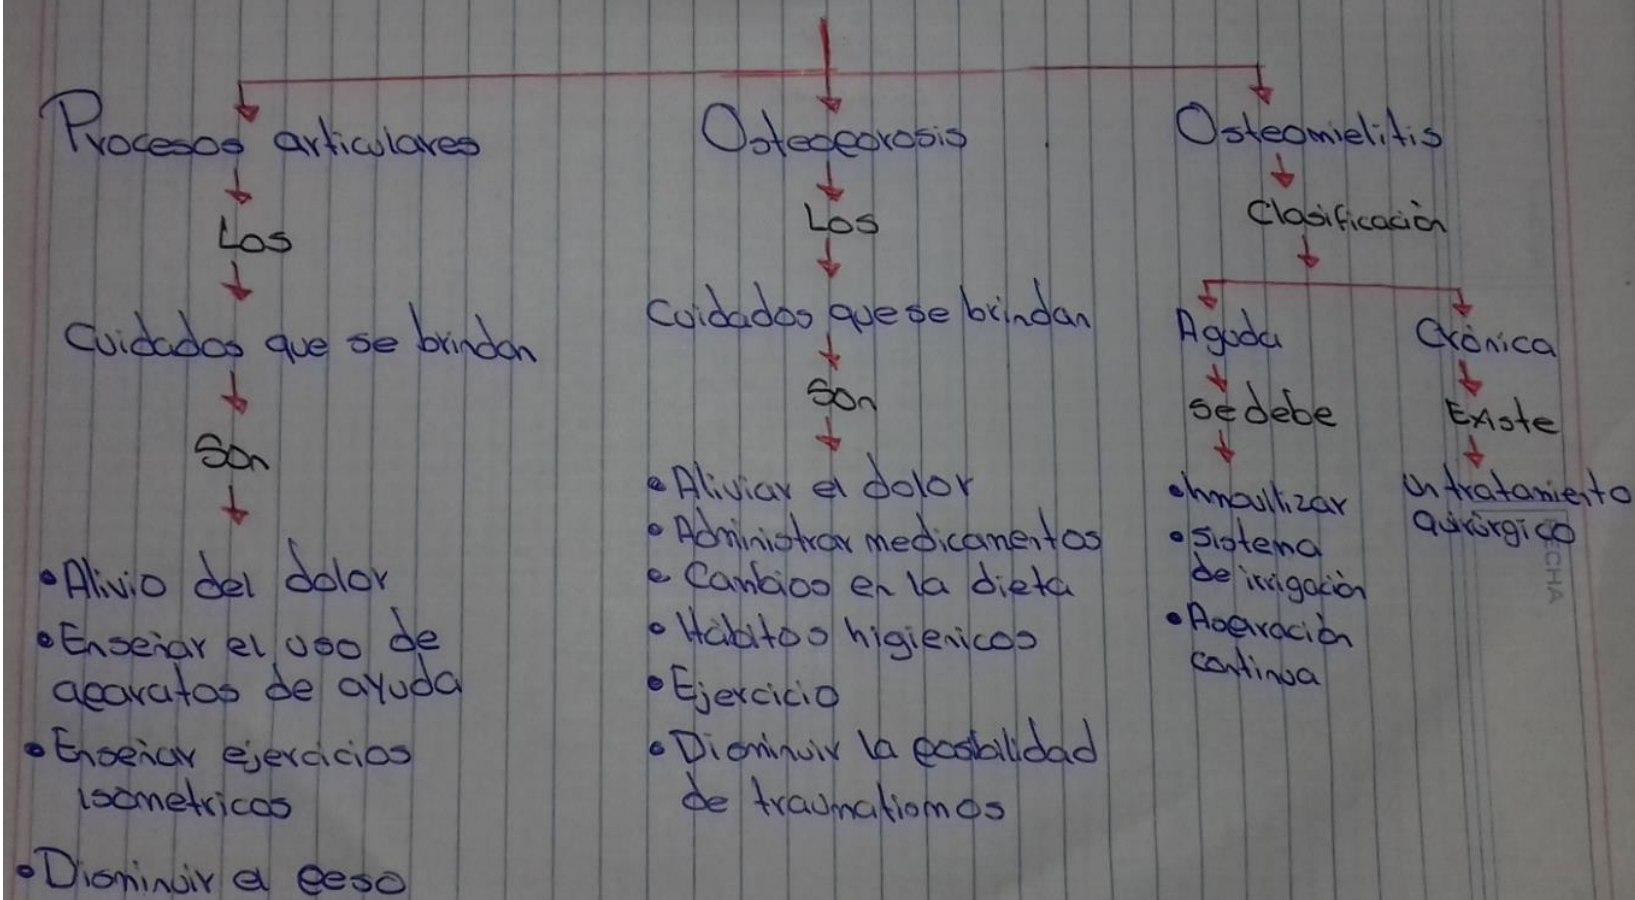 Procesos articulares
Los
Cuidados que se brindan
Son
• Alivio del dolor
• Enseñar el uso de
aparatos de ayuda
• Enseñar ejercicios
isometricos
• Disminuir el peso
Osteoporosis
Los
Cuidados que se brindan
Son
• Aliviar el dolor
• Administrar medicamentos
• Cambios en la dieta
• Hábitos higienicos
• Ejercicio
• Disminuir la posibilidad
de traumatismos
Osteomielitis
Clasificación
Aguda
se debe
• Inmovilizar
• Sistema
de irrigación
• Aspiración
continua
Crónica
Existe
un tratamiento
quirúrgico
CHA